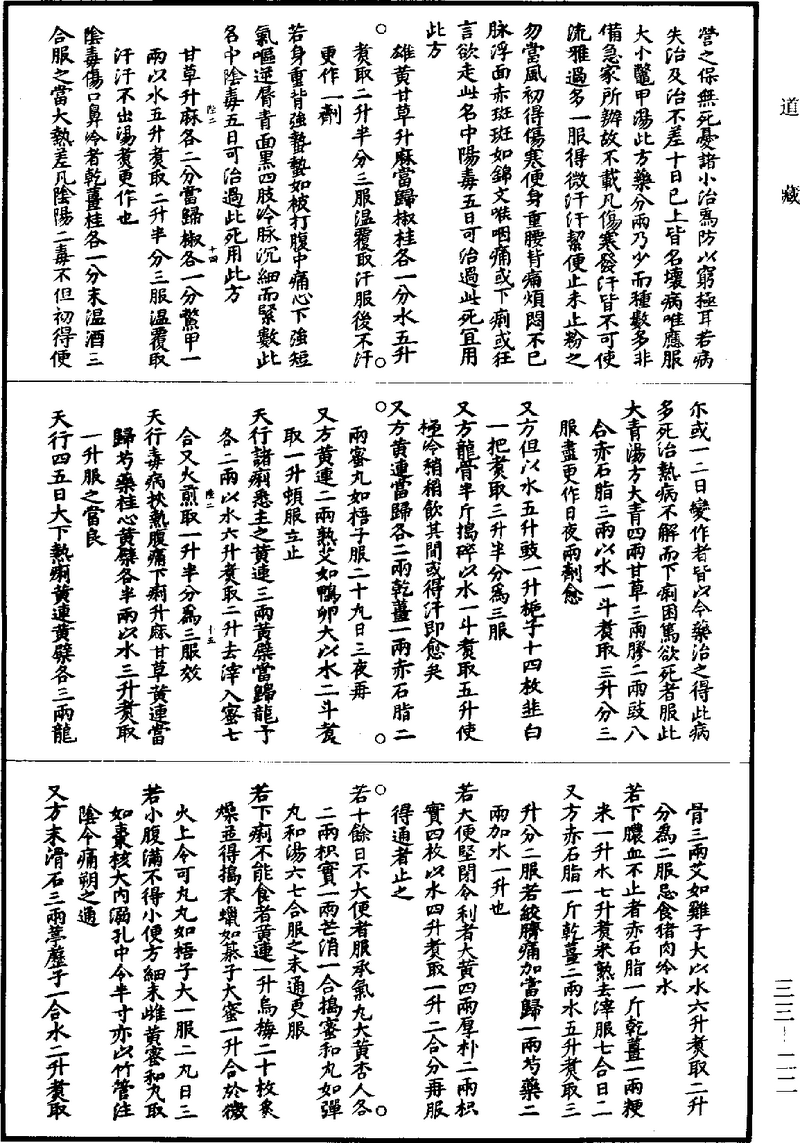 道藏
營之保無死憂諸小治爲防以窮極耳若病
失治及治不差十日已上皆名壞病唯應服
大小鼈甲湯此方藥分兩乃少而種數多非
備急家所辦故不載凡傷寒發汗皆不可使
流離過多一服得微汗汗絜便止未止粉之
勿當風初得傷寒便身重腰背痛煩悶不已
脉浮面赤斑斑如錦文喉咽痛或下痢或狂
言欲走此名中陽毒五日可治過此死冝用
此方
雄黄甘草升麻當歸椒桂各一分水五升
煑取二升半分三服温覆取汗服後不汗
更作一劑
若身重背強蟄蟄如被打腹中痛心下強短
氣嘔逆脣青面黒四肢冷脉沉細而緊數此
名中陰毒五日可治過此死用此方
陸二 十四
甘草升麻各二分當歸椒各一分鱉甲一
兩以水五升煑取二升半分三服温覆取
汗汗不出湯煑更作也
陰毒傷口鼻冷者乾薑桂各一分末温酒三
合服之當大熱差凡陰陽二毒不但初得便
尓或一二日變作者皆以今藥治之得此病
多死治熱病不解而下痢困篤欲死者服此
大青湯方大青四兩甘草三兩膠二兩豉八
合赤石脂三兩以水一斗煑取三升分三
服盡更作日夜兩劑愈
又方但以水五升豉一升梔子十四枚韭白
一把煑取三升半分爲三服
又方龍骨半斤搗碎以水一斗煑取五升使
極冷稍稍飲其間或得汗即愈矣
又方黄連當歸各二兩乾薑一兩赤石脂二
兩蜜丸如梧子服二十丸日三夜再
又方黄連二兩熟艾如鴨卵大以水二斗煑
取一升頓服立止
天行諸痢悉主之黄連三兩黄蘗當歸龍子
各二兩以水六升煑取二升去滓入蜜七
陸二 十五
合又火煎取一升半分爲三服效
天行毒病挾熱腹痛下痢升麻甘草黄連當
歸芍藥桂心黄蘗各半兩以水三升煑取
一升服之當良
天行四五日大下熱痢黄連黄蘗各三兩龍
骨三兩艾如雞子大以水六升煑取二升
分爲二服忌食猪肉冷水
若下膿血不止者赤石脂一斤乾薑一兩粳
米一升水七升煑米熟去滓服七合日二
又方赤石脂一斤乾薑二兩水五升煑取三
升分二服若絞臍痛加當歸一兩芍藥二
兩加水一升也
若大便堅閉令利者大黄四兩厚朴二兩枳
實四枚以水四升煑取一升二合分再服
得通者止之
若十餘日不大便者服承氣丸大黄杏人各
二兩枳實一兩芒消一合搗蜜和丸如彈
丸和湯六七合服之未通更服
若下痢不能食者黄連一升烏梅二十枚炙
燥並得搗末蠟如棊子大蜜一升合於微
火上令可丸丸如梧子大一服二丸日三
若小腹滿不得小便方細末雌黄蜜和丸取
如棗核大内溺孔中令半寸亦以竹管注
陰令痛朔之通
又方末滑石三兩葶藶子一合水二升煑取
三三—二二